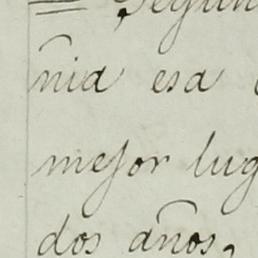 Segun
ñia esa
mejor lug
dos años,